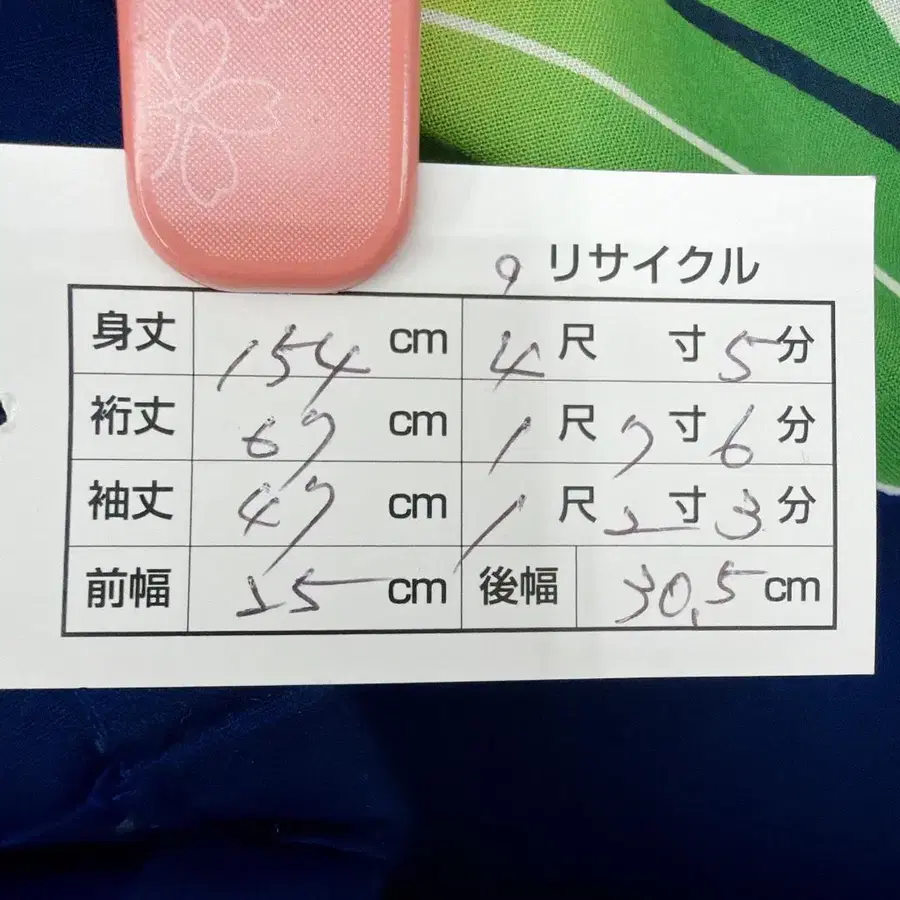 9 リサイクル
身丈 154 cm 4 尺 寸 5 分
裄丈 67 cm 1 尺 7 寸 6 分
袖丈 47 cm 1 尺 2 寸 3 分
前幅 25 cm 後幅 30.5 cm